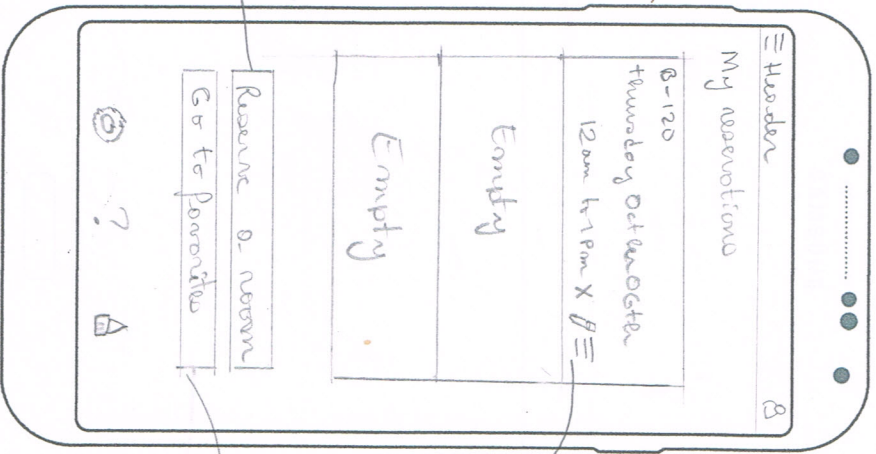 ☰ Header
My reservations
B-120
thursday October 06th
12am to 1pm X
Empty
Empty
Reserve a room
Go to favorites
?